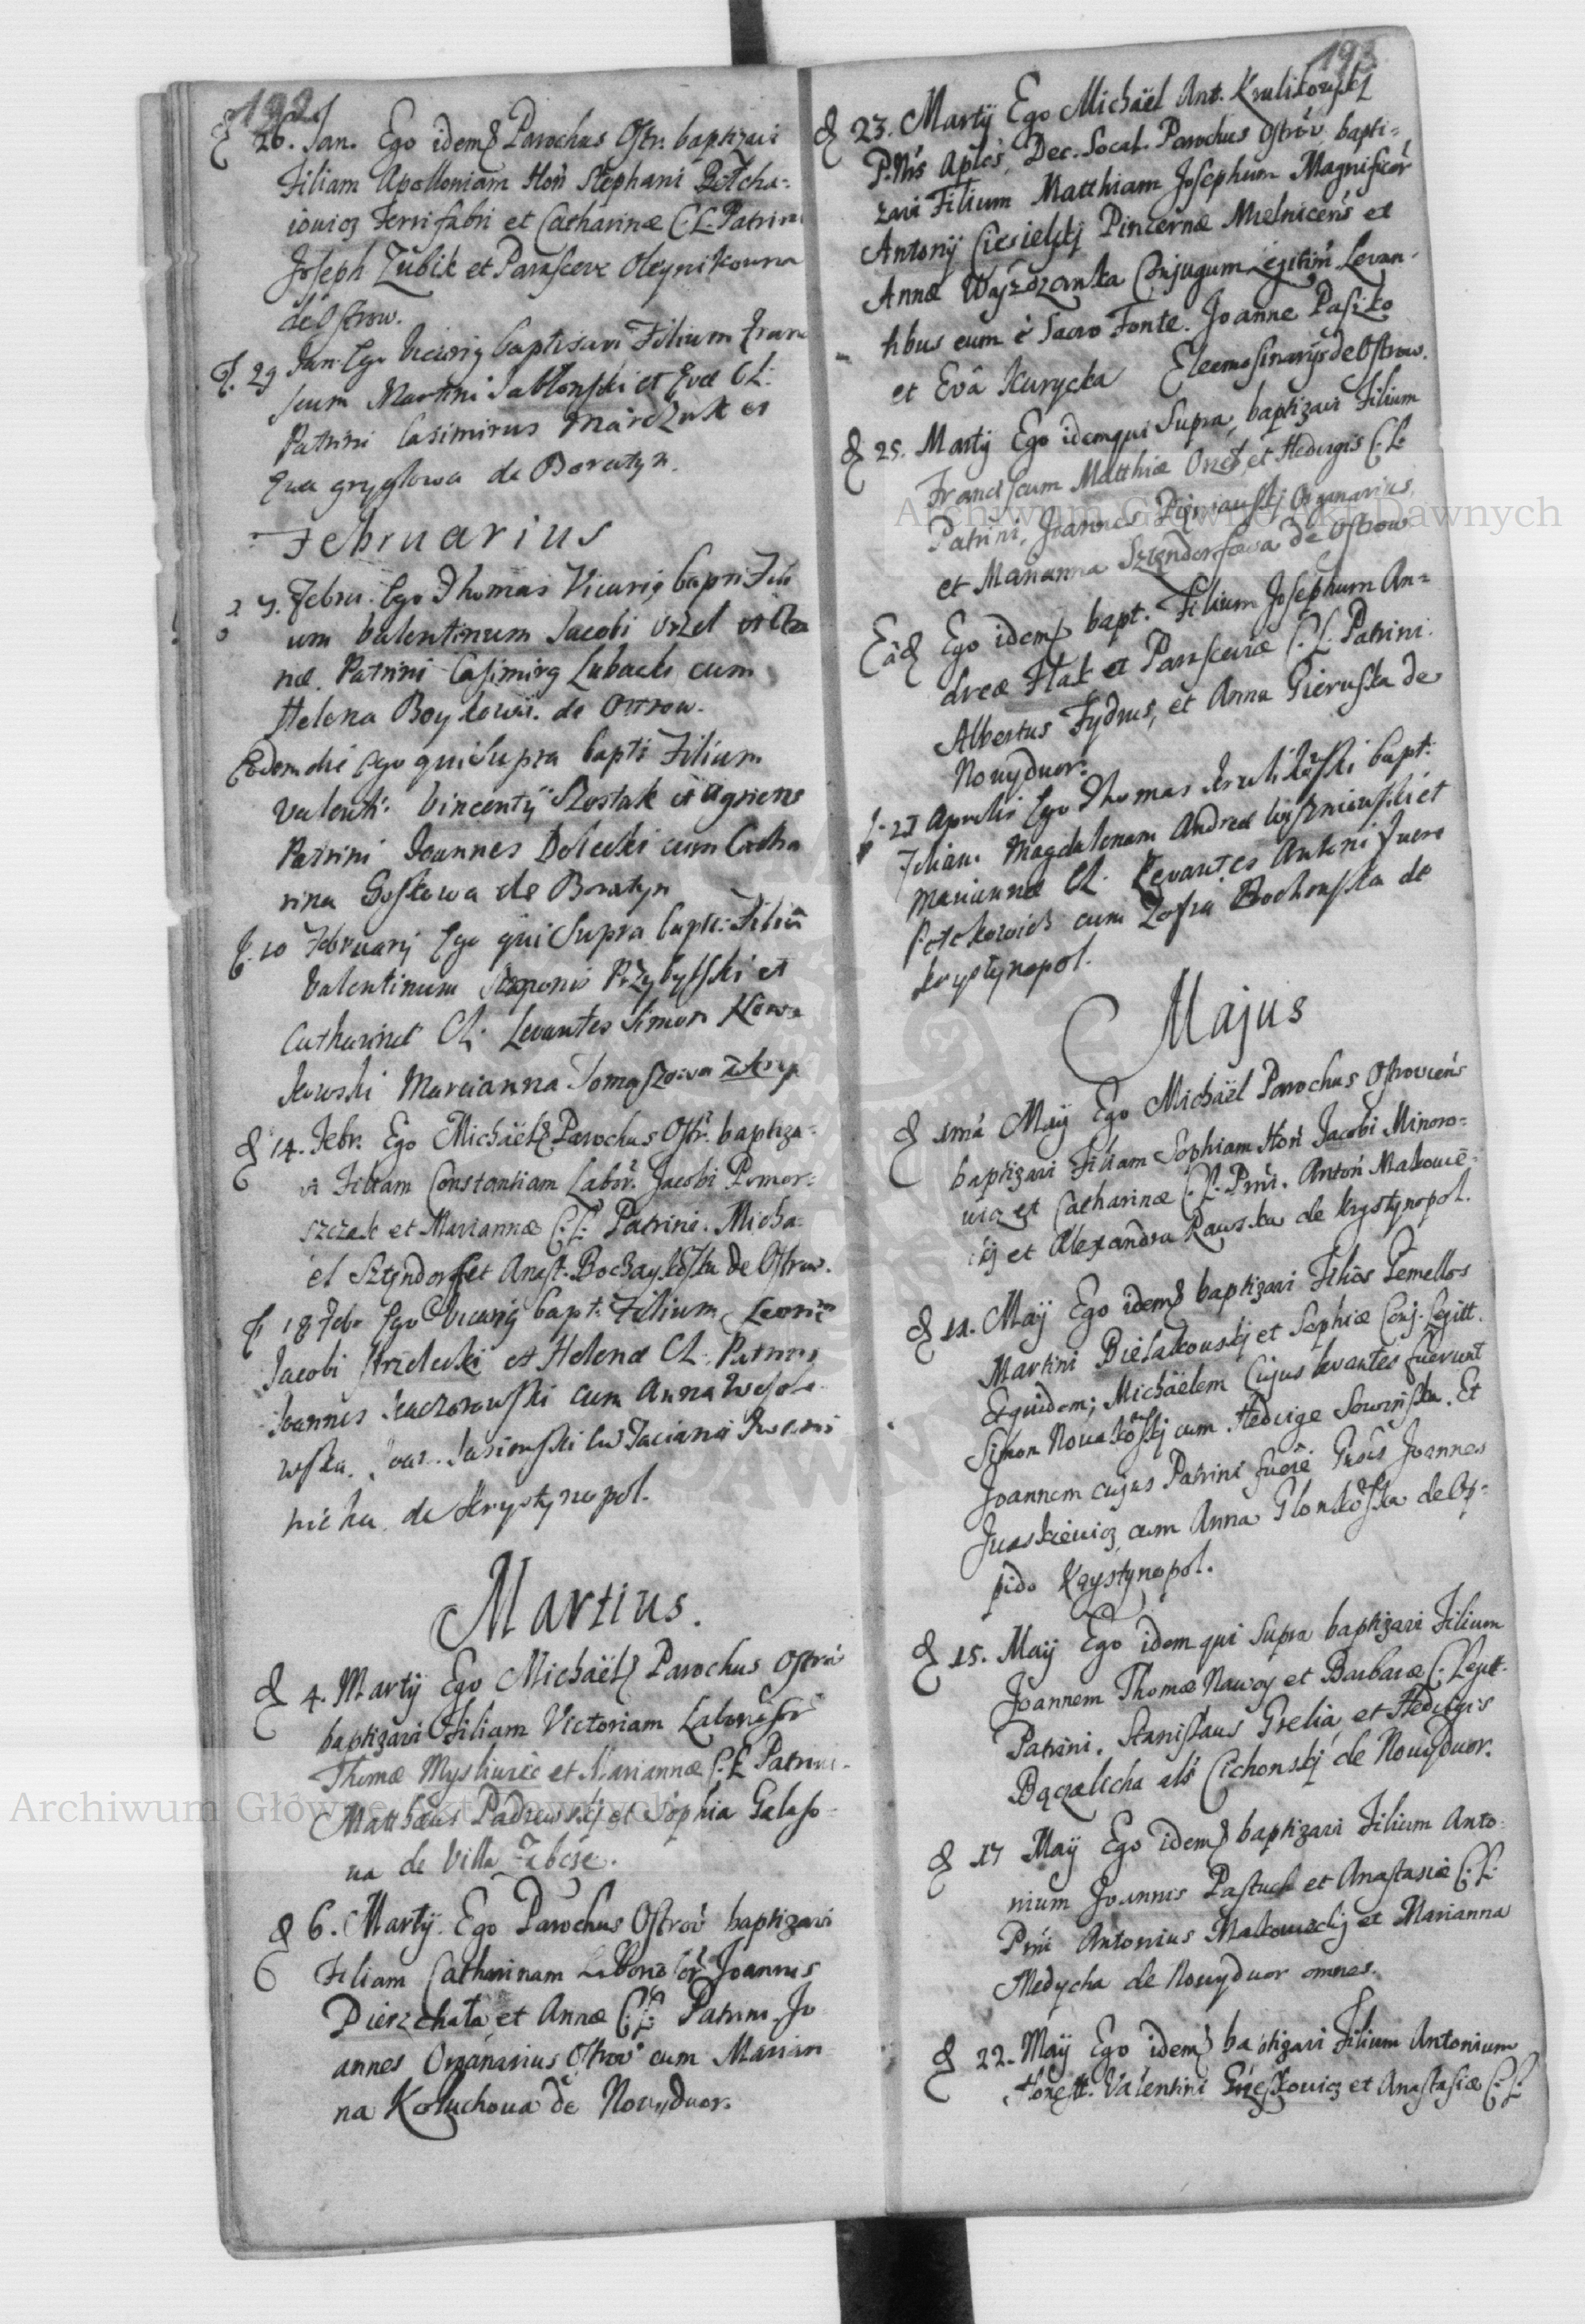 192
26. Jan. Ego idemq Parochus Ostr. baptizavi
Filiam Apolloniam Hon Stephani
iowicz Ferrifabri et Catharinæ C. L. Patrini
Joseph Zubik et Parasceve Oleynikowna
de Ostrow.
29 Jan. Ego Vicarig baptisavi Filium Fran
scum Martini Jabłonski et Evæ CL:
Patrini Casimirus Marczuk et
Ewa gryglowa de Boratyn.
Februarius
Febru. Ego Thomas Vicarig bapti Fili
um Valentinum Jacobi
næ. Patrini Casimirg Lubacki cum
Helena Boykowa. de Ostrow.
Eodem die Ego qui Supra bapti Filium
Valenti: Vincentÿ Szostak et Agnetis
Patrini Joannes Dolecki cum Catha
rina Goskowa de Boratyn
10 Februarij Ego qui Supra bapti: Filiū
Valentinum Przybylski et
Catharinæ CL: Levantes Simon Nowa
kowski Marcianna Tomaszowa
14. Febr. Ego Michaëlq Parochus Ostr. baptiza-
vi Filiam Constantiam Labor. Jacobi Pomor-
szczak et Mariannæ C. L. Patrini. Micha-
ël Sztendorf et Anast. de Ostrow.
18 Feb. Ego Vicarig bapt: Filium Leonem
Jacobi Strzelecki et Helenæ CL: Patrini
Joannes Kaczorowski cum Anna Wesoło-
wska.
de Krystynopol.
Martius.
4. Martÿ Ego Michaëlq Parochus Ostrov
baptizavi Filiam Victoriam Laborios
Thomæ Mysliwiec et Mariannæ C. L. Patrini.
Matthæus Padewskj et Sophia Galaso-
wa de Villa
6. Martÿ. Ego Parochus Ostrov baptizavi
Filiam Catharinam Joannis
Pierzchała et Annæ C: L: Patrini. Jo
annes Organarius Ostrov cum Marian-
na Kołuchowa de Nowydwor.
193
23. Martÿ Ego Michaël Ant. Krulikowskj
P. Nrs Aplcs, Dec. Socal. Parochus Ostrov, bapti-
zavi Filium Matthiam Josephum Magnificor
Antonÿ Ciesielskj Pincernæ Mielnicens et
Annæ Conjugum Legitim. Levan-
tibus eum è Sacro Fonte. Joanne Pasiko
et Evâ Kurycka Eleemosinarÿs de Ostrow.
25. Martÿ Ego idemqui Supra, baptizavi Filium
Franciscum Matthiæ et Hedvigis C. L.
Patrini, Joannes Organarius,
et Marianna Sztendorfowa de Ostrow
Eâd Ego idemq bapt. Filium Josephum An-
dreæ Hak et Parasceviæ C. L. Patrini.
Albertus Fydrus, et Anna Gieruska de
Nowydwor.
Aprilis Ego Thomas Krulikowski bapt:
Filiam Magdalenam Andreæ Wiszniewski et
Mariannæ CL. Levantes Antoni
cum Zofia Bochenska de
Krystynopol.
Majus
1mâ Maÿ Ego Michaël Parochus Ostroviens
baptizavi Filiam Sophiam Hon Jacobi Minoro-
wicz et Catharinæ C. L. Prni. Anton Makowiec-
kj et Alexandra Rawska de Krystynopol.
11. Maÿ Ego idemq baptizavi Filios Gemellos
Martini Bielakowskj et Sophiæ Conj. Legitt.
Etquidem; Michaëlem Cujus levantes fuerunt
Simon Nowakowskj cum Hedvige Sowinska. Et
Joannem cujus Patrini fuere Joannes
Juszkiewicz cum Anna Glonkowska de Op-
pido Krystynopol.
15. Maÿ Ego idem qui Supra baptizavi Filium
Joannem Thomæ Nawoy et Barbaræ C. Legitt.
Patrini. Stanislaus Grelia et Hedvigis
Bączalicha als Cichonskj de Nowydwor.
17 Maÿ Ego idemq baptizavi Filium Anto-
nium Joannis Pastuch et Anastasiæ C: L:
Prni Antonius Makowieckj et Marianna
Medycha de Nowydwor omnes.
22. Maÿ Ego idemq baptizavi Filium Antonium
Honestt. Valentini et Anastasiæ C: L:
Archiwum Główne Akt Dawnych
Archiwum Główne Akt Dawnych